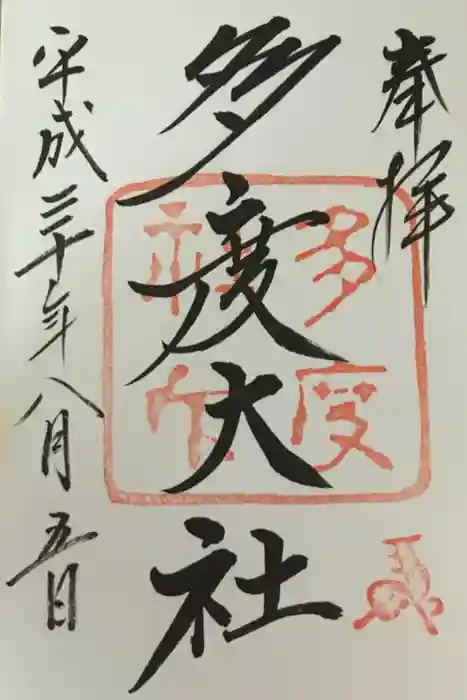 奉拝
多度大社
多度
神社
平成三十年八月五日